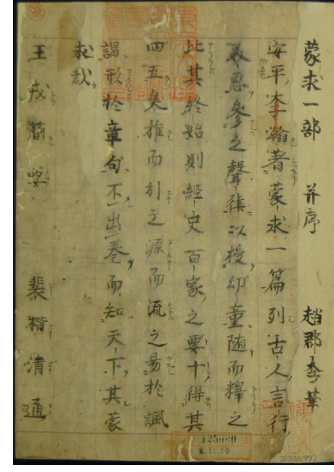 蒙求一部 并序 趙郡李華
安平李瀚著蒙求一篇列古人言行
美惡參之聲律以授幼童隨而釋之
比其終始則經史百家之要十得其
四五矣推而引之源而流之易於諷
誦形於章句不出卷而知天下其蒙
求哉
王戎簡要 裴楷清通